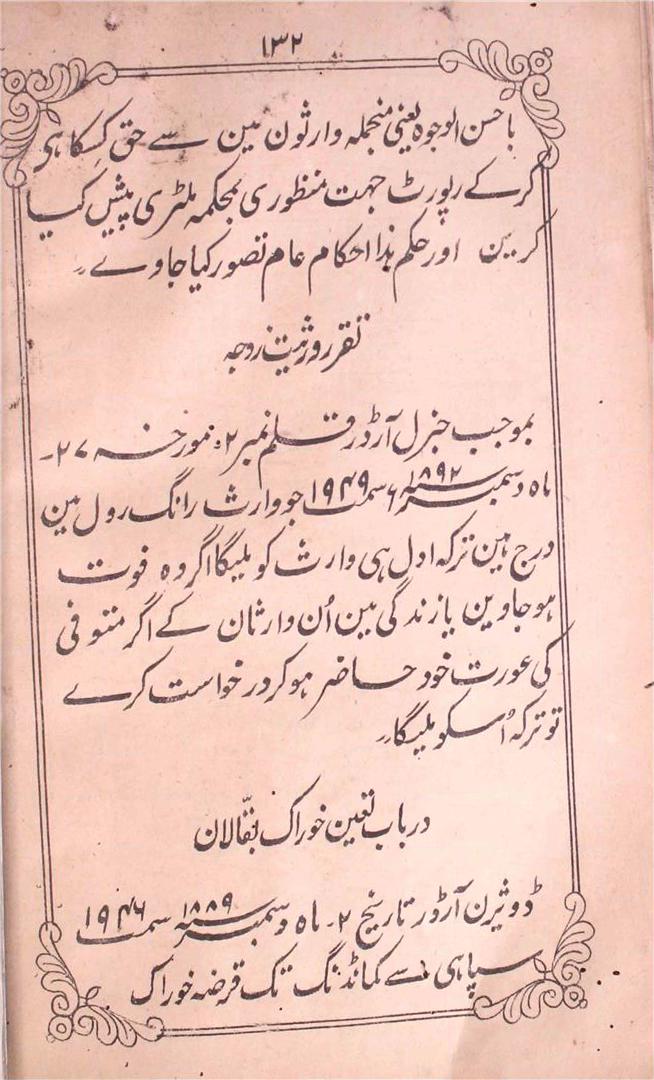 ۱۳۲
باحسن الوجوہ یعنی منجملہ وارثون مین سے حق کسکا ہی
کرکے رپورٹ جہت منظوری بمحکمہ ملٹری پیش کیا
کرین اور حکم ہذا احکام عام تصور کیا جاوے۔
تقرر ورثیت زوجہ
بموجب جنرل آرڈر قلم نمبر ۲ء مورخہ ۲۷۔
ماہ دسمبر سنہ ۱۸۹۲ء سمت ۱۹۴۹ جو وارث رانگ رول مین
درج ہین ترکہ اول ہی وارث کو ملیگا اگر وہ فوت
ہوجاوین یا زندگی مین اُن وارثان کے اگر متوفی
کی عورت خود حاضر ہوکر درخواست کرے
تو ترکہ اُسکو ملیگا۔
درباب تعین خوراک بقّالان
ڈویژن آرڈر تاریخ ۲۔ ماہ دسمبر سنہ ۱۸۸۹ سمت ۱۹۴۶
سپاہی سے کمانڈنگ تک قرضہ خوراک